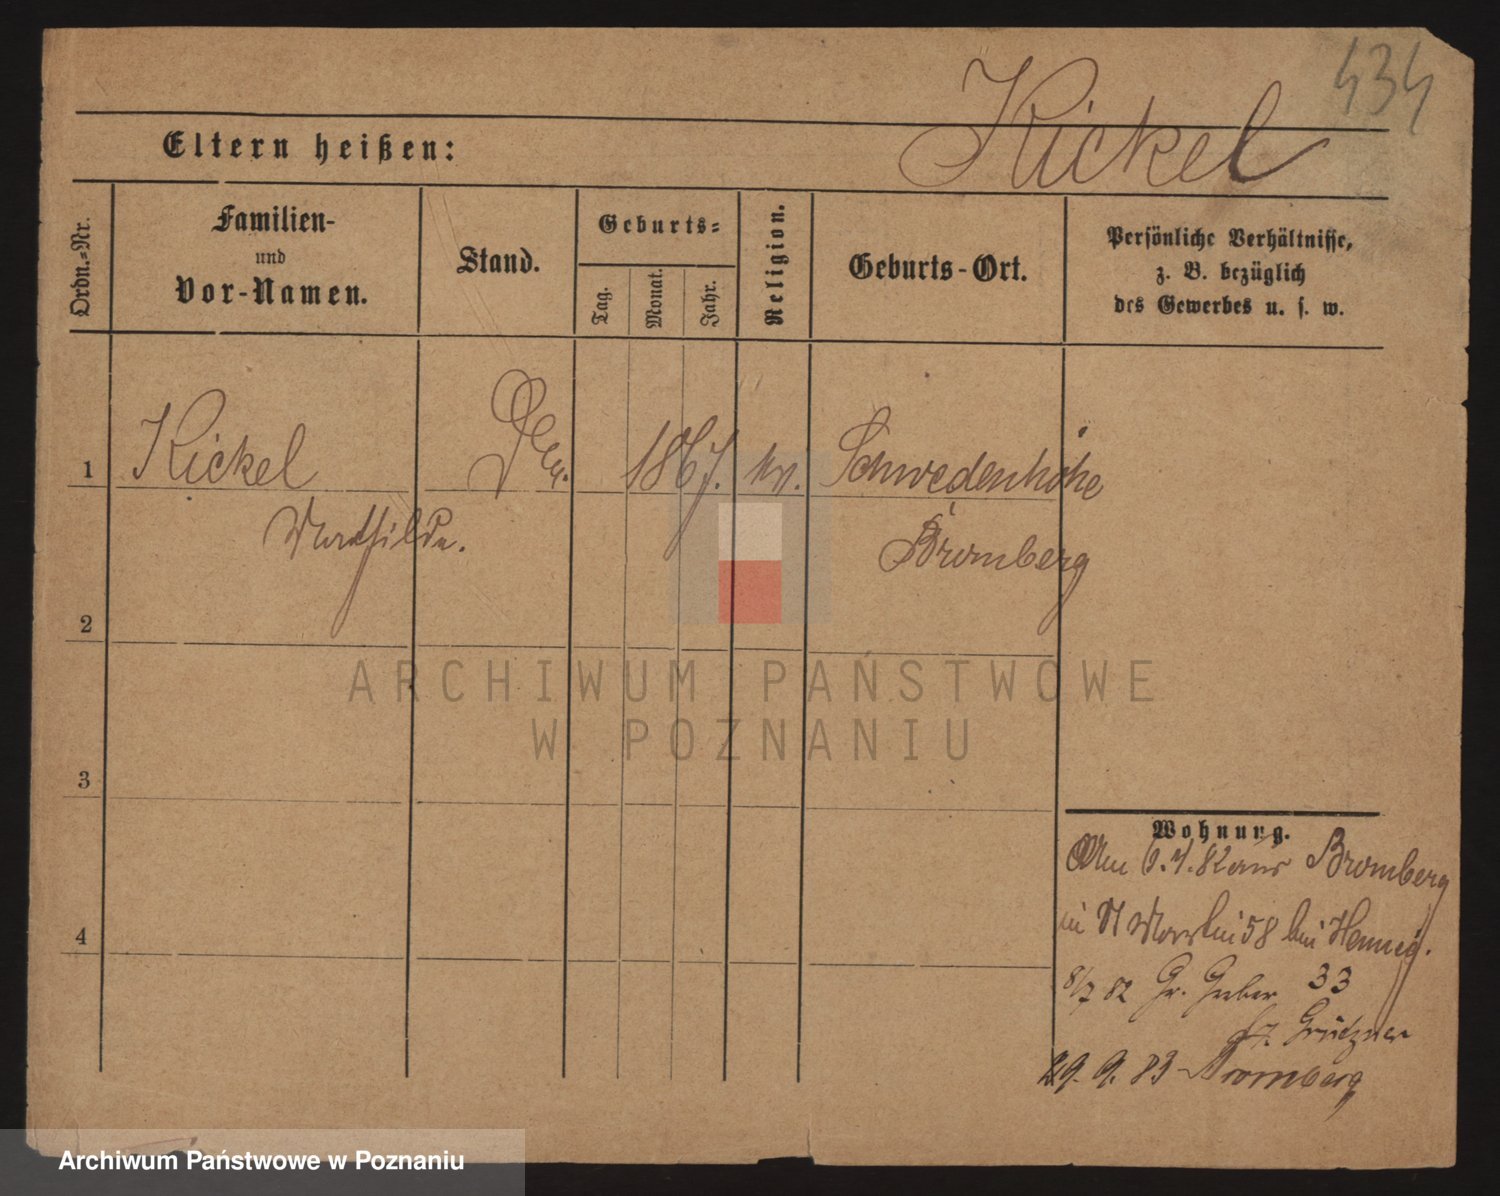 434
Kickel
Eltern heißen:
Ordn.=Nr.
Familien-
und
Vor-Namen.
Stand.
Geburts=
Tag.
Monat.
Jahr.
Religion.
Geburts-Ort.
Persönliche Verhältnisse,
z. B. bezüglich
des Gewerbes u. s. w.
1
Kickel
1867.
Schwedenhöhe
Mathilde.
Bromberg
2
ARCHIWUM PAŃSTWOWE
W POZNANIU
3
Wohnung.
Am 82 aus Bromberg
in St Martin 58 bei Hennig.
4
8/7 82 Gr. Gerber 33
Grützner
29. 9. 83 Bromberg
Archiwum Państwowe w Poznaniu